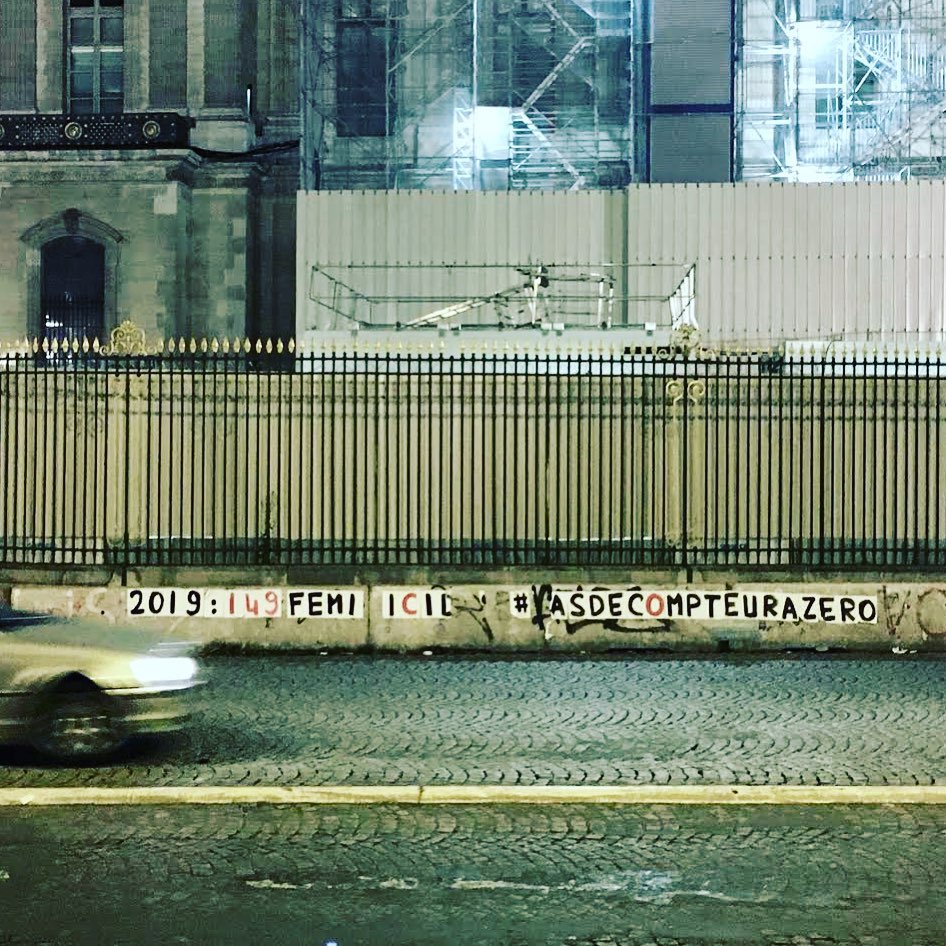 2019:149 FEMI ICID #PASDECOMPTEURAZERO